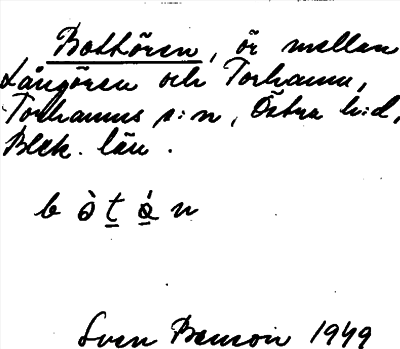 Botthören, ör mellan
Långören och Torhamn,
Torhamns s:n, Östra h:d,
Blek. län.
b ò t ó̤ n
Sven Benson 1949